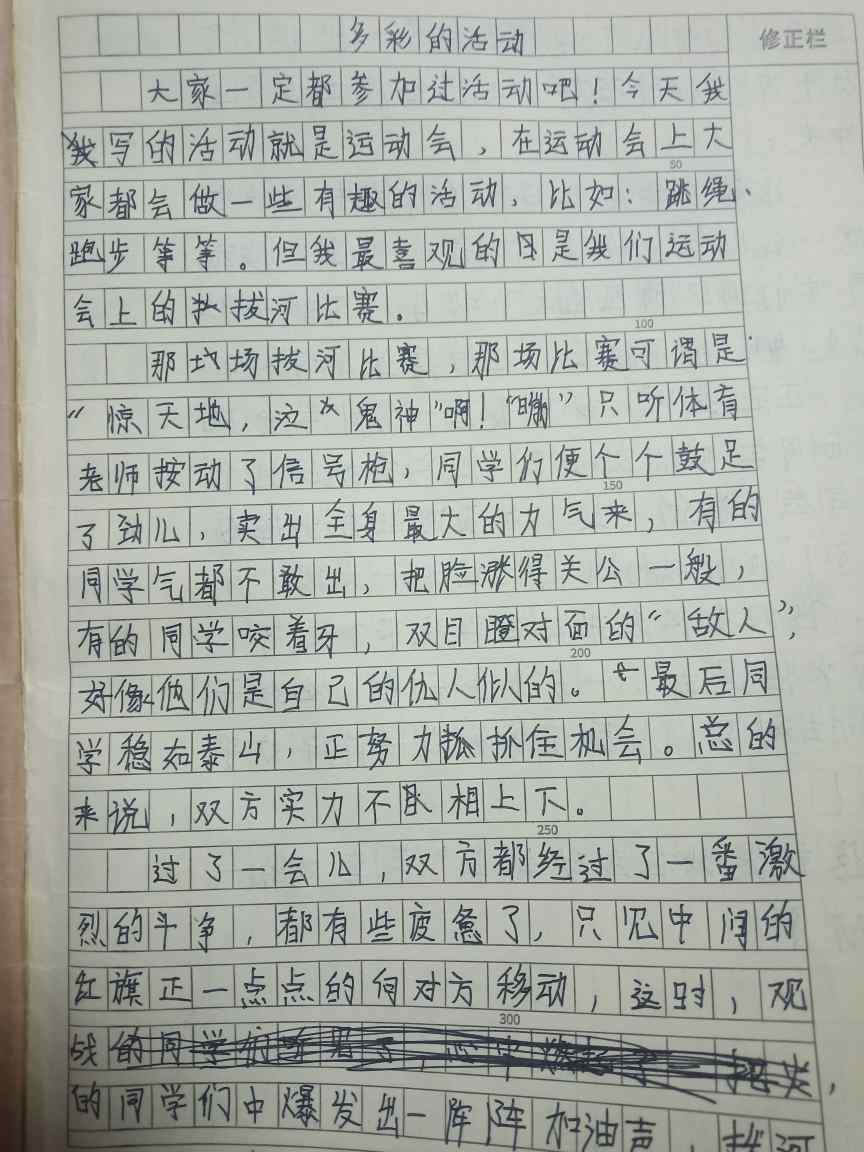 多彩的活动
修正栏
大家一定都参加过活动吧！今天我
写的活动就是运动会，在运动会上大
50
家都会做一些有趣的活动，比如：跳绳、
跑步等等。但我最喜观的还是我们运动
会上的拔河比赛。
100
那场拔河比赛，那场比赛可谓是
“惊天地，泣鬼神”啊！“嘣”只听体育
老师按动了信号枪，同学们便个个鼓足
150
了劲儿，卖出全身最大的力气来，有的
同学气都不敢出，把脸涨得关公一般，
有的同学咬着牙，双目瞪对面的“敌人”，
200
好像他们是自己的仇人似的。最后同
学稳如泰山，正努力抓住机会。总的
来说，双方实力不相上下。
250
过了一会儿，双方都经过了一番激
烈的斗争，都有些疲惫了，只见中间的
红旗正一点点的向对方移动，这时，观
300
战
的同学们中爆发出一阵阵加油声，拔河